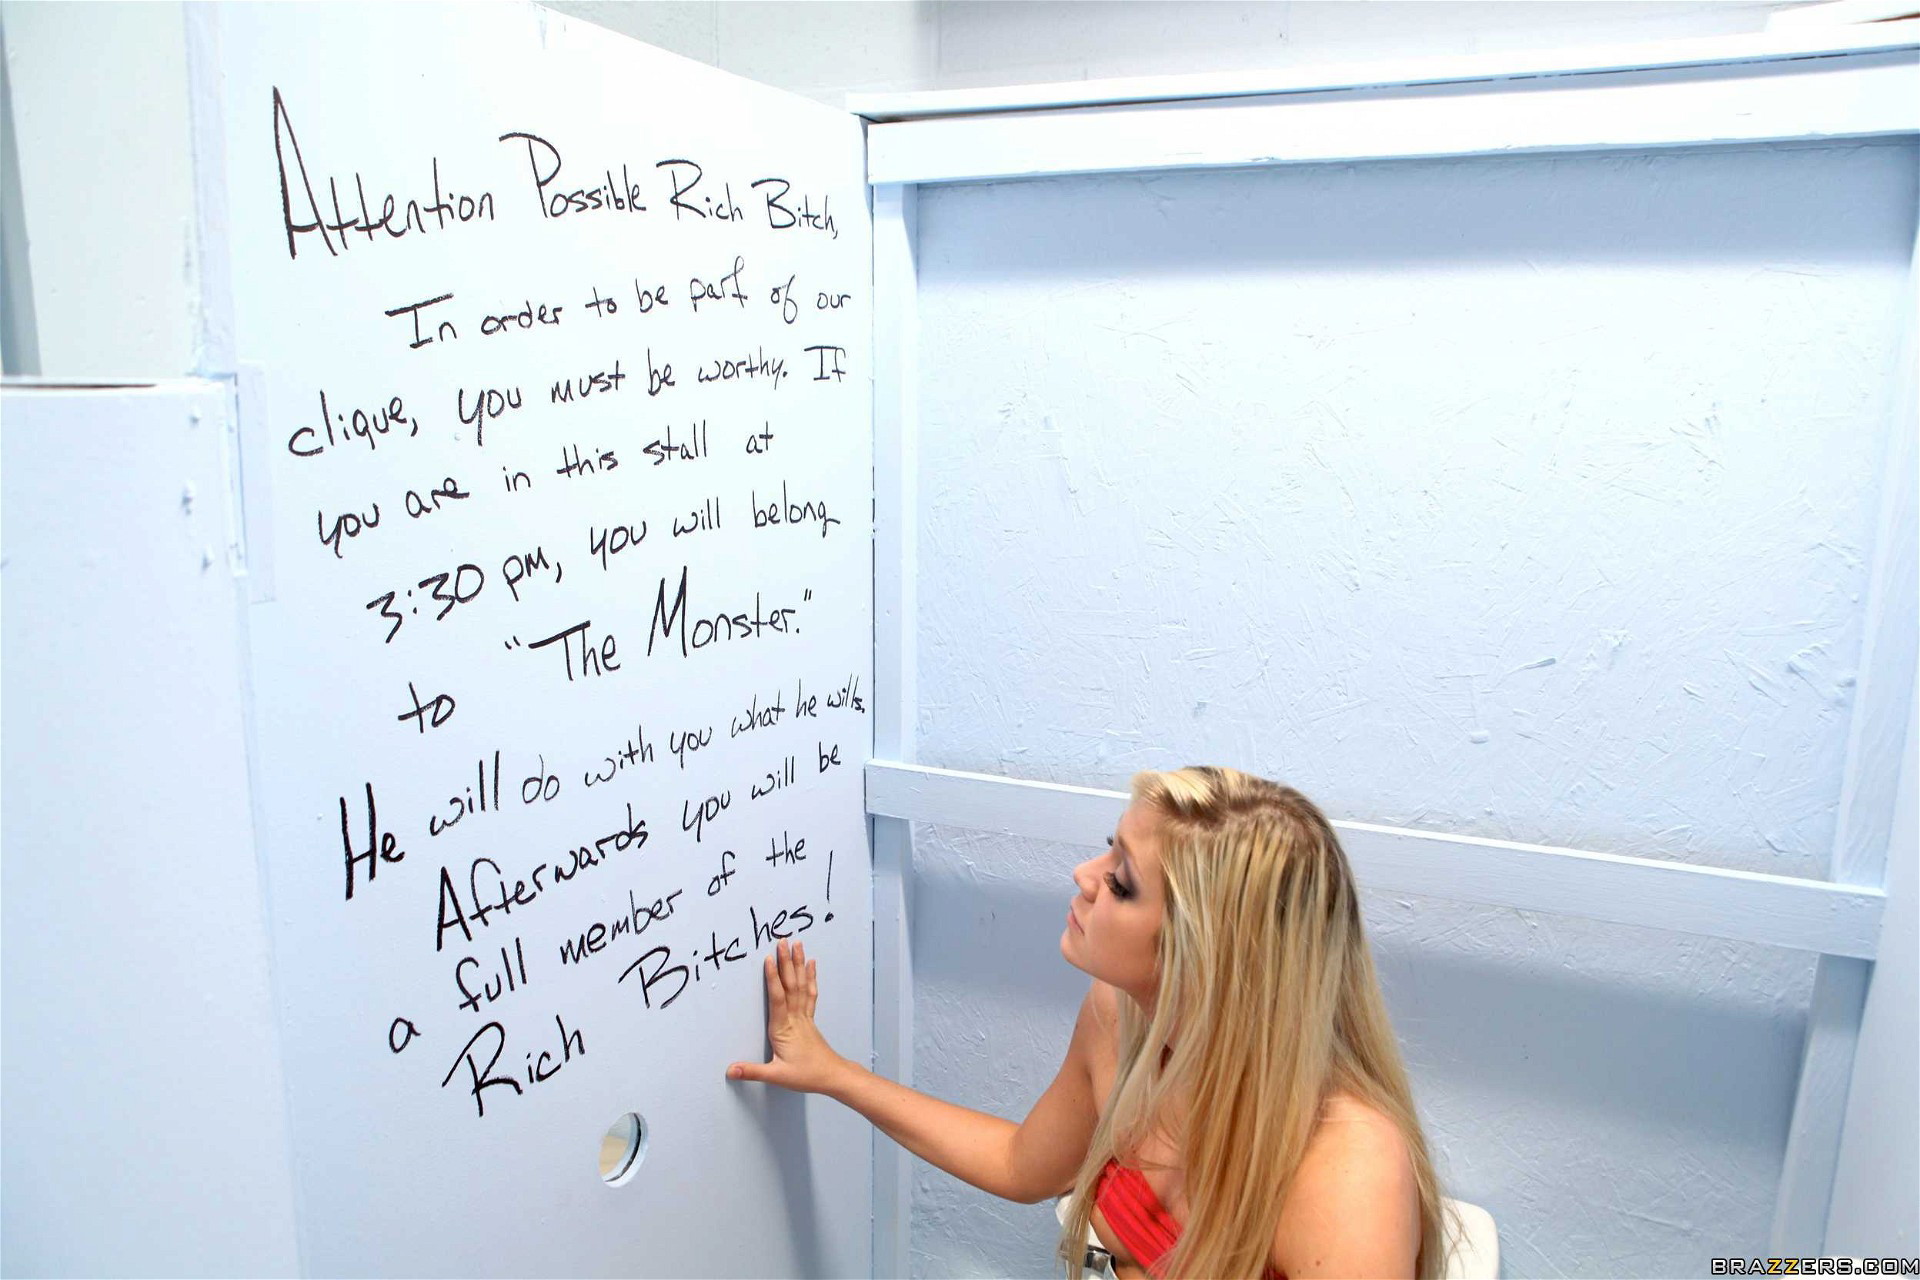 Attention Possible Rich Bitch,
In order to be part of our
clique, you must be worthy. If
you are in this stall at
3:30 pm, you will belong
to "The Monster."
He will do with you what he wills.
Afterwards you will be
a full member of the
Rich Bitches!
BRAZZERS.COM